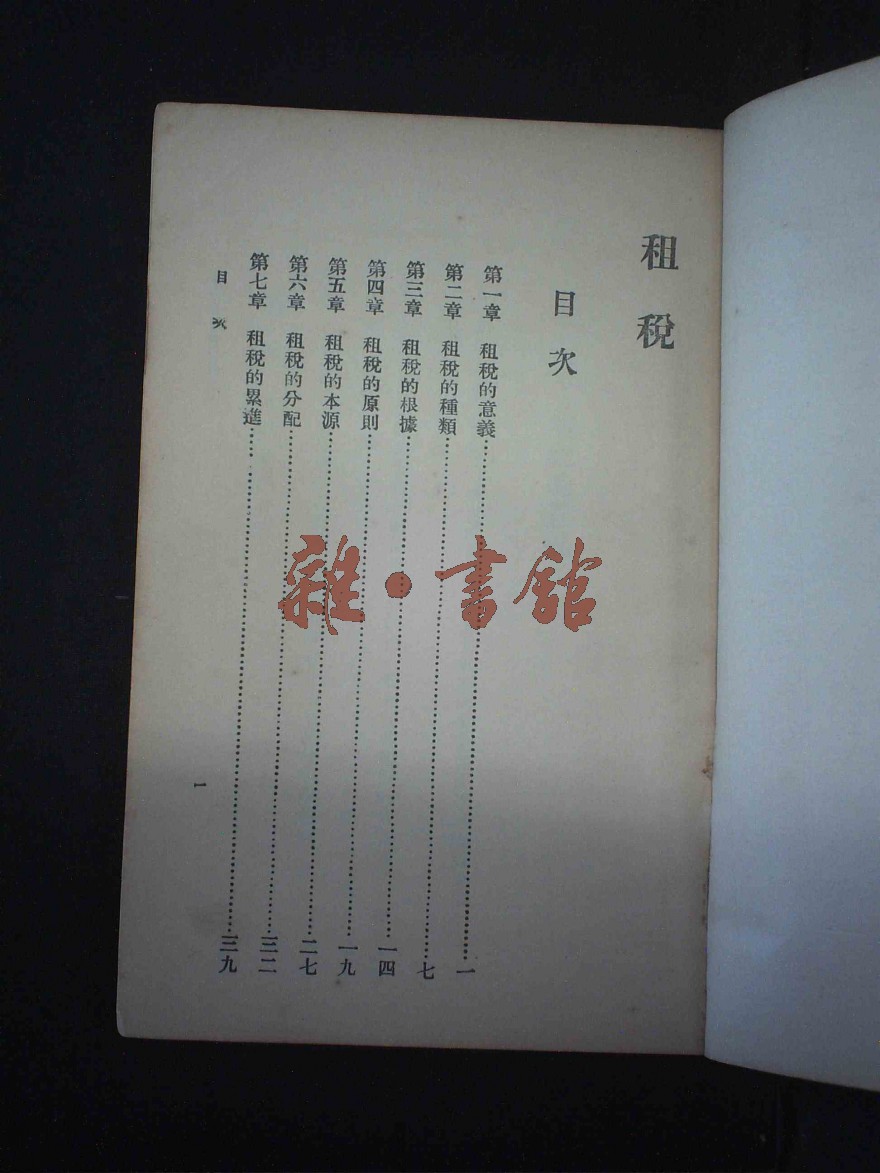 租稅
目次
第一章 租稅的意義……一
第二章 租稅的種類……七
第三章 租稅的根據……一四
第四章 租稅的原則……一九
第五章 租稅的本源……二七
第六章 租稅的分配……三二
第七章 租稅的累進……三九
目次
一
雜·書館